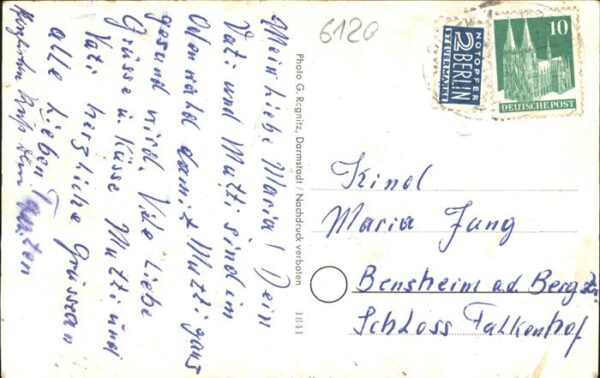 Mein liebe Maria! Dein
Vati und Mutti sind im
Odenwald damit Mutti ganz
gesund wird. Viele liebe
Grüsse u. Küsse Mutti und
Vati herzliche Grüsse an
alle lieben Tanten
6120
NOTOPFER
2 BERLIN
STEUERMARKE
10
DEUTSCHE POST
Photo G. Ragnitz, Darmstadt / Nachdruck verboten
1841
Kind
Maria Jung
Bensheim a.d. Bergstr.
Schloss Falkenhof